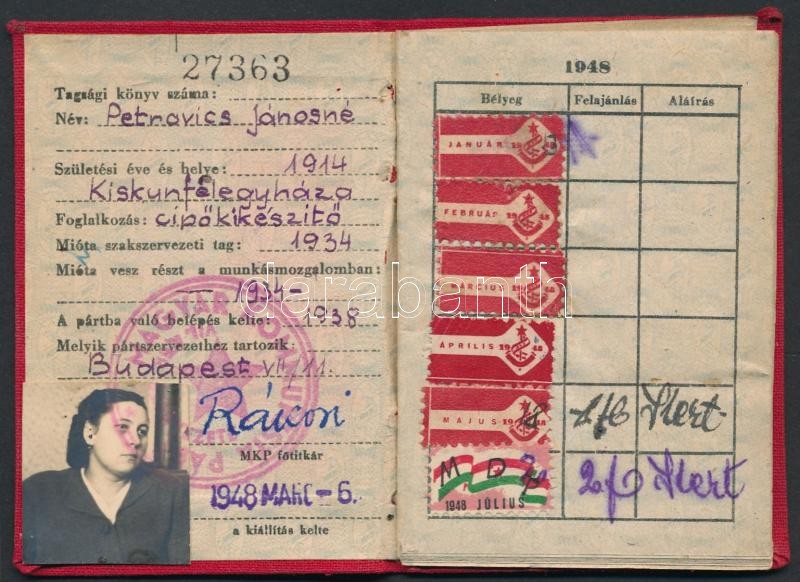 27363
Tagsági könyv száma:
Név: Petravics Jánosné
Születési éve és helye: 1914
Kiskunfélegyháza
Foglalkozás: cipőkikészítő
Mióta szakszervezeti tag: 1934
Mióta vesz részt a munkásmozgalomban:
— 1934 —
A pártba való belépés kelte: 1938
Melyik pártszervezethez tartozik:
Budapest VII/11.
Rákosi
MKP főtitkár
1948 MARC - 6.
a kiállítás kelte
1948
Bélyeg Felajánlás Aláírás
JANUÁR 1948
FEBRUÁR 1948
MÁRCIUS 1948
ÁPRILIS 1948
MÁJUS 1948
MDP
1948 JÚLIUS
darabanth